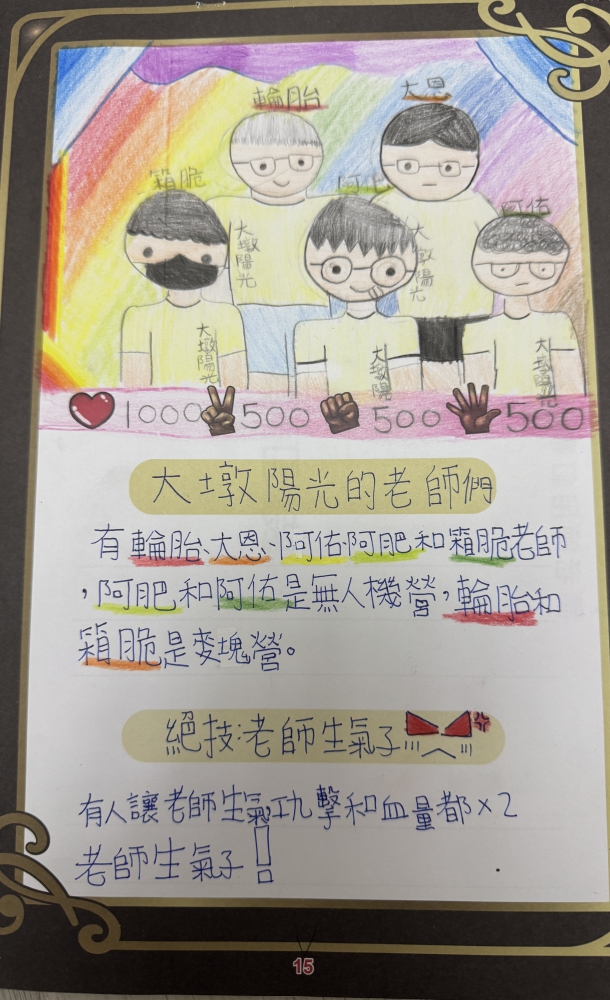 輪胎
大恩
箱脆
阿佑
大墩陽光
大墩陽光
大墩陽光
大墩陽
大墩陽光
1000 500 500 500
大墩陽光的老師們
有輪胎、大恩、阿佑、阿肥和箱脆老師
,阿肥和阿佑是無人機營,輪胎和
箱脆是麥塊營。
絕技:老師生氣了
有人讓老師生氣功擊和血量都×2
老師生氣了!
15